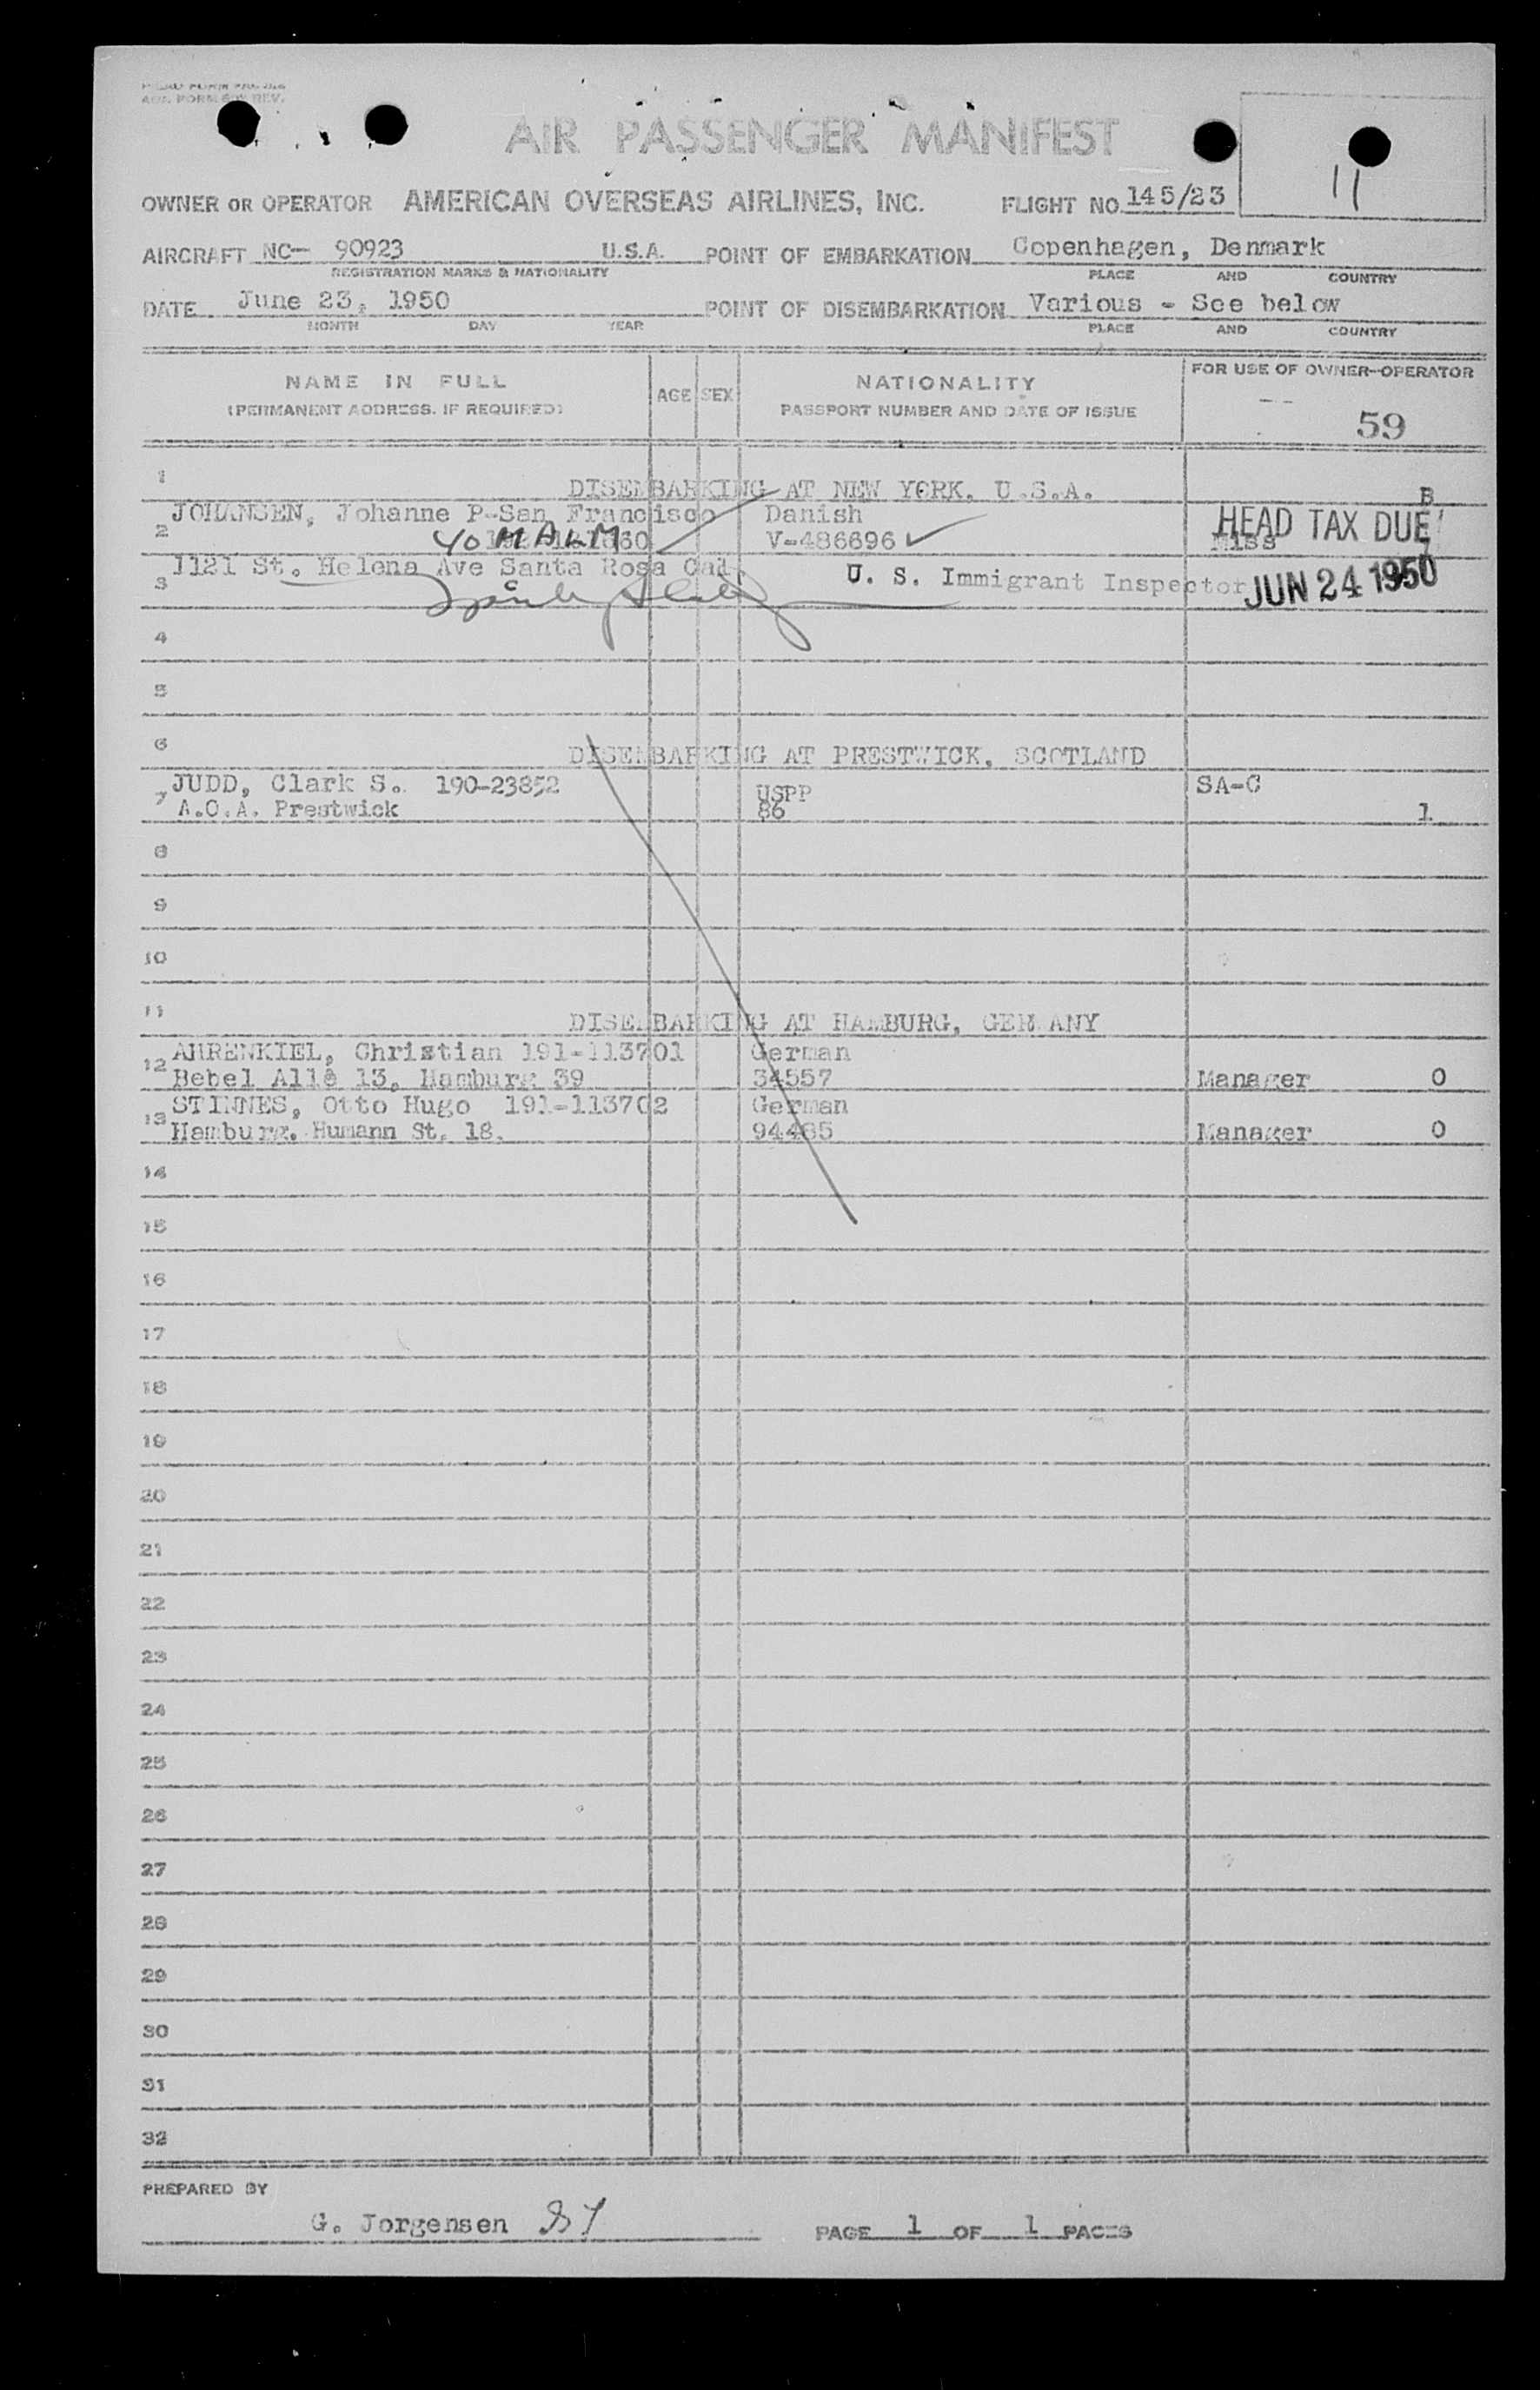 AIR PASSENGER MANIFEST
11
OWNER OR OPERATOR AMERICAN OVERSEAS AIRLINES, INC. FLIGHT NO. 145/23
AIRCRAFT NC- 90923 U.S.A. POINT OF EMBARKATION Copenhagen, Denmark
REGISTRATION MARKS & NATIONALITY PLACE AND COUNTRY
DATE June 23, 1950 POINT OF DISEMBARKATION Various - See below
MONTH DAY YEAR PLACE AND COUNTRY
NAME IN FULL AGE SEX NATIONALITY FOR USE OF OWNER-OPERATOR
(PERMANENT ADDRESS, IF REQUIRED) PASSPORT NUMBER AND DATE OF ISSUE
59
1 DISEMBARKING AT NEW YORK, U.S.A.
B
JOHANSEN, Johanne P-San Francisco Danish HEAD TAX DUE
2 40 MALM V-486696 Miss
1121 St. Helena Ave Santa Rosa Cal. U. S. Immigrant Inspector JUN 24 1950
3
4
5
6 DISEMBARKING AT PRESTWICK, SCOTLAND
JUDD, Clark S. 190-23852 USPP SA-C
7 A.O.A. Prestwick 86 1
8
9
10
11 DISEMBARKING AT HAMBURG, GERMANY
AHRENKIEL, Christian 191-113701 German
12 Bebel Allè 13, Hamburg 39 34557 Manager 0
STINNES, Otto Hugo 191-113702 German
13 Hamburg. Humann St. 18. 94485 Manager 0
14
15
16
17
18
19
20
21
22
23
24
25
26
27
28
29
30
31
32
PREPARED BY
G. Jorgensen PAGE 1 OF 1 PAGES